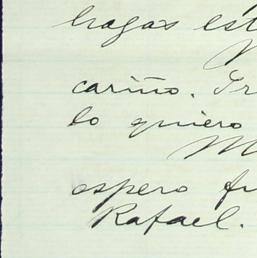 hagas est
cariño. Tr
lo quiero
M
espero fu
Rafael.